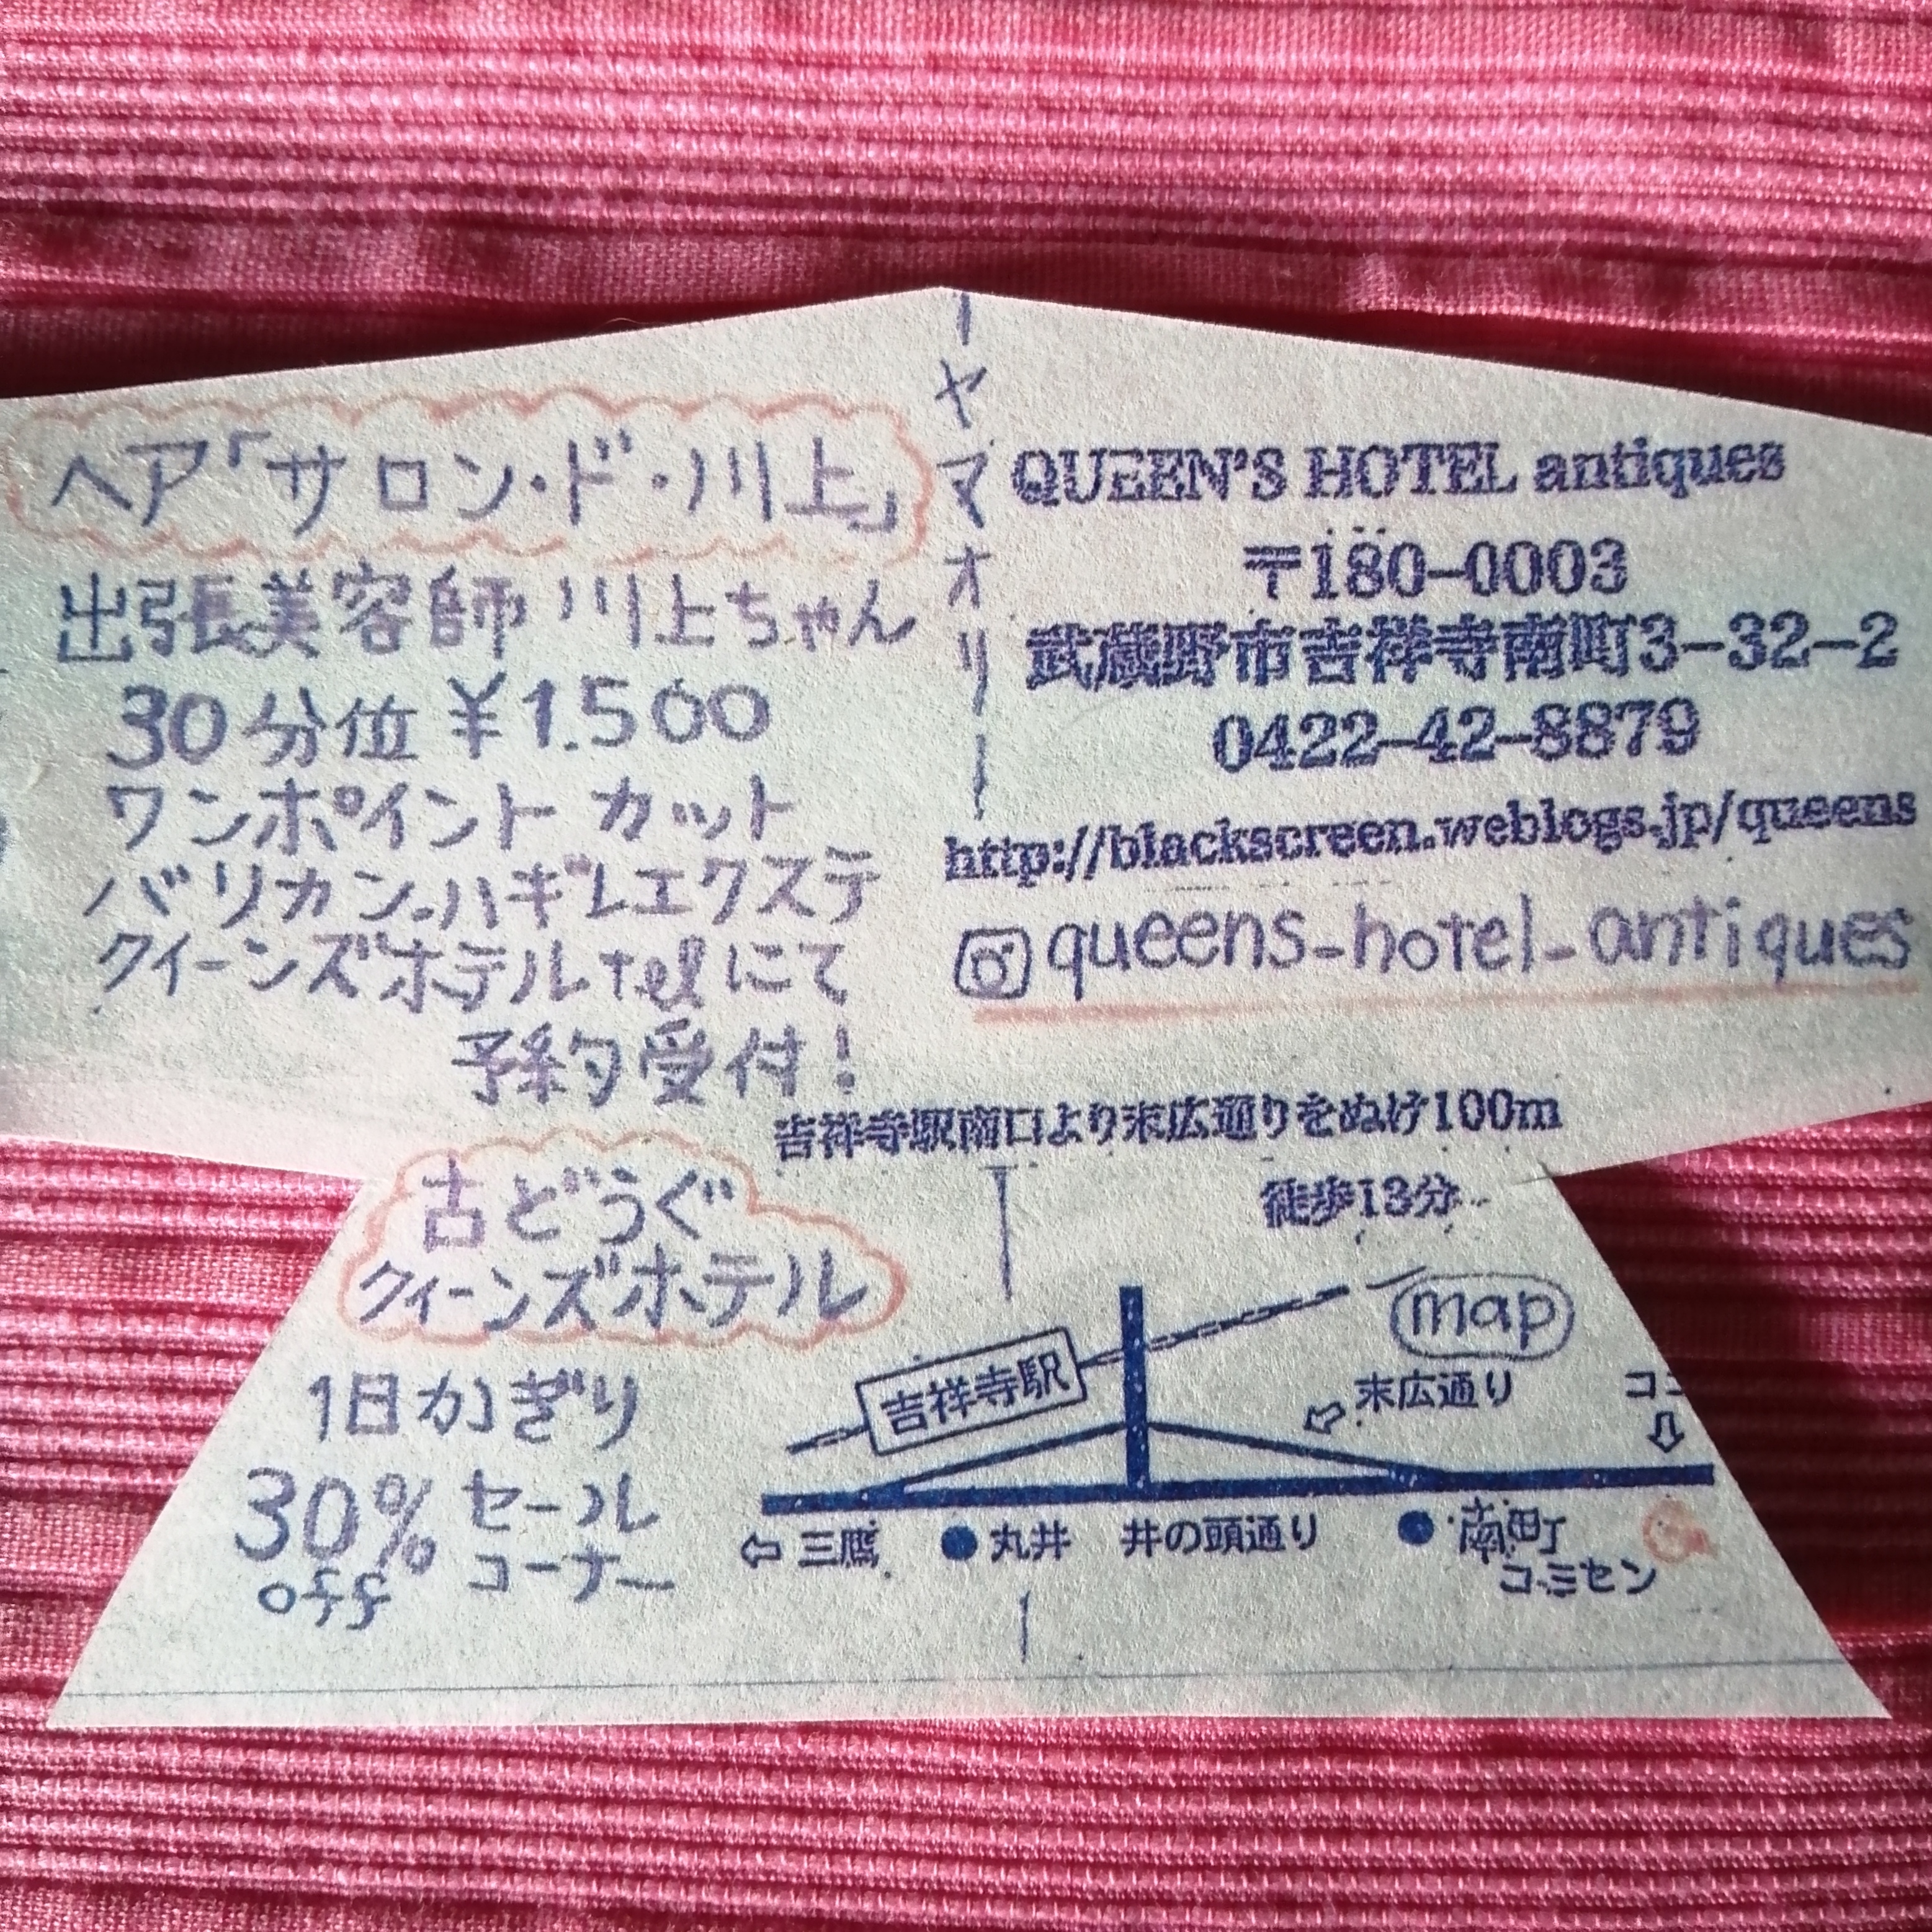 ヘア「サロン・ド・川上」
出張美容師 川上ちゃん
30分位 ¥1.500
ワンポイント カット
バリカン・ハギレエクステ
クイーンズホテル telにて
予約受付!
ヤマオリ
QUEEN'S HOTEL antiques
〒180-0003
武蔵野市吉祥寺南町3-32-2
0422-42-8879
http://blackscreen.weblogs.jp/queens
queens-hotel-antiques
吉祥寺駅南口より末広通りをぬけ100m
徒歩13分
古どうぐ
クィーンズホテル
1日かぎり
30% セール
off コーナー
map
吉祥寺駅
末広通り
⇦ 三鷹
丸井
井の頭通り
南町
コミセン